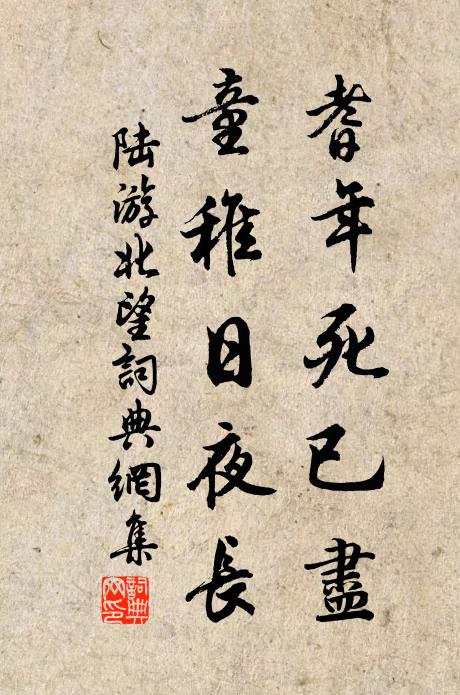 耆年死已盡
童稚日夜長
陸游北望詞典網集
詞典
网印